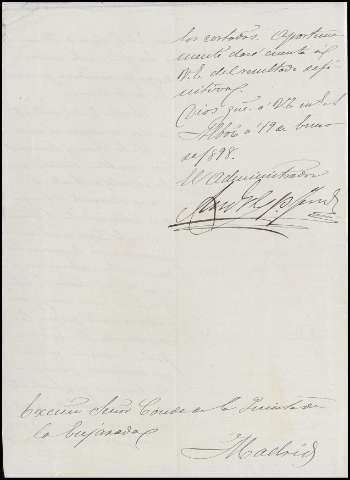 los costados. Oportuna
mente daré cuenta á
V.E. del resultado defi
nitivo.
Dios gue. á V.E. m. a.
á 19 de Enero
de 1898.
El Administrador
Excmo Señor Conde de la Quinta de
la Enjarada
Madrid